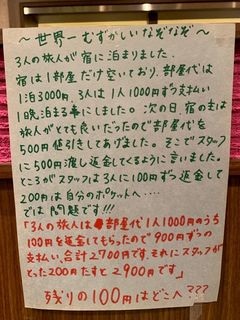 ～世界一むずかしいなぞなぞ～
3人の旅人が宿に泊まりました.
宿は1部屋だけ空いており、部屋代は
1泊3000円. 3人は1人1000円ずつ支払い
1晩泊まる事にしました。次の日 宿の主は
旅人がとても良い人だったので部屋代を
500円値引きしてあげました。そこでスタッフ
に500円渡し返金してくるように言いました。
ところがスタッフは3人に100円ずつ返金して
200円は自分のポケットへ・・・・
では問題です!!!
「3人の旅人は部屋代1人1000円のうち
100円を返金してもらったので900円ずつの
支払い。合計2700円。それにスタッフが
とった200円たすと2900円です」
残りの100円はどこへ???